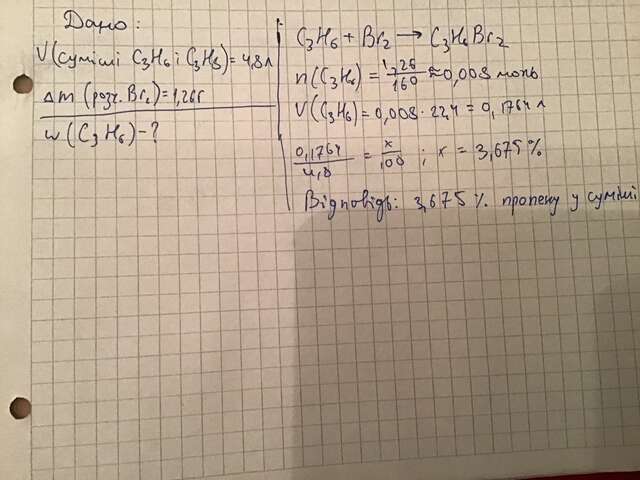 Дано:
V(суміші C₃H₆ і C₃H₈) = 4,8л
Δm (розч. Br₂) = 1,26г
w(C₃H₆) - ?
C₃H₆ + Br₂ → C₃H₆Br₂
n(C₃H₆) = 1,26/160 ≈ 0,008 моль
V(C₃H₆) = 0,008 · 22,4 = 0,1764 л
0,1764/4,8 = x/100 ; x = 3,675 %
Відповідь: 3,675 % пропену у суміші